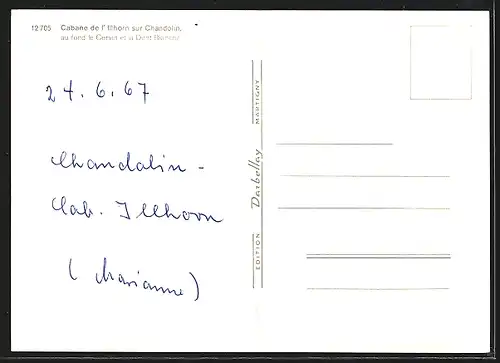 12705 Cabane de l'Illhorn sur Chandolin,
au fond le Cervin et la Dent Blanche
24.6.67
Chandolin -
Cab. Illhorn
(Marianne)
EDITION Darbellay MARTIGNY